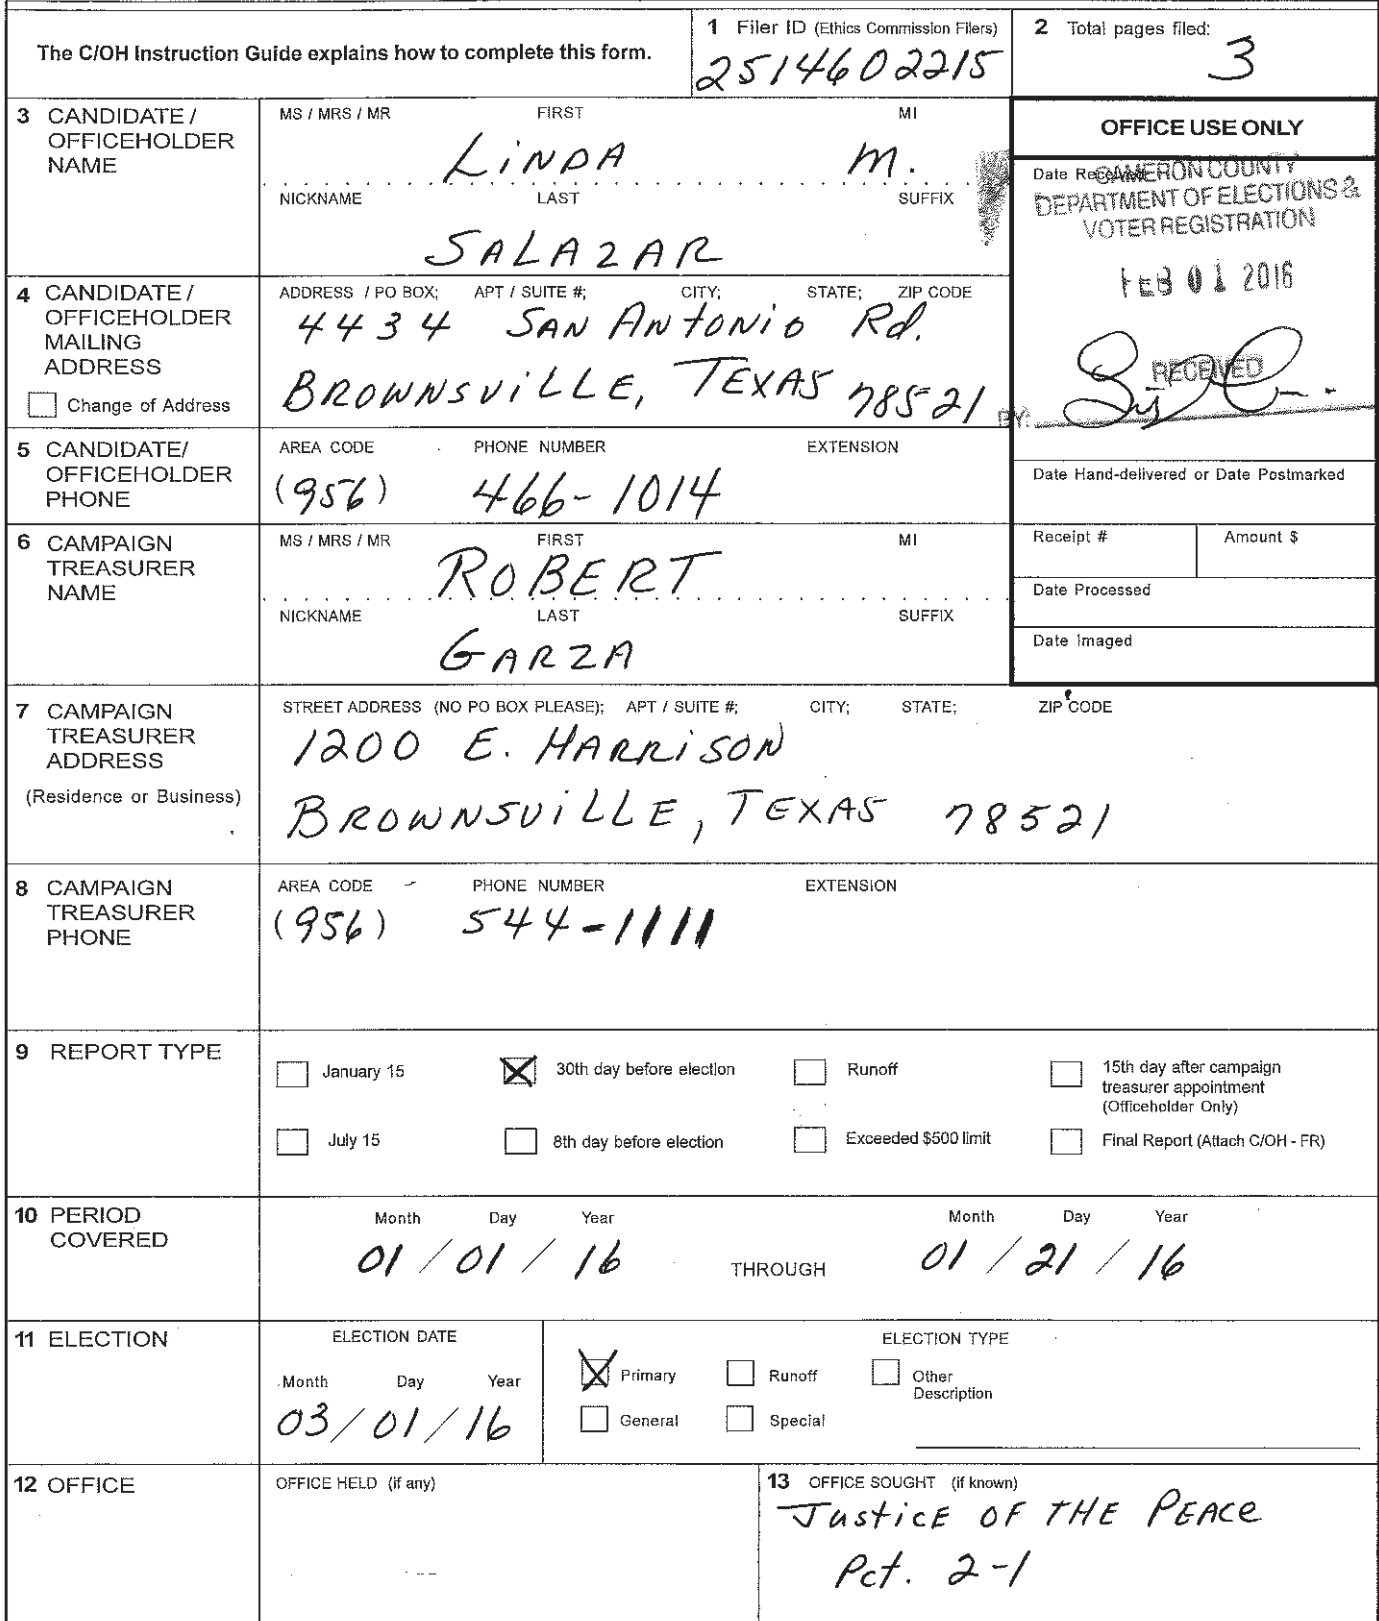 The C/OH Instruction Guide explains how to complete this form.
1 Filer ID (Ethics Commission Filers)
2514602215
2 Total pages filed:
3
3 CANDIDATE / OFFICEHOLDER NAME
MS / MRS / MR FIRST MI
LiNDA M.
NICKNAME LAST SUFFIX
SALAZAR
OFFICE USE ONLY
Date Received
CAMERON COUNTY
DEPARTMENT OF ELECTIONS &
VOTER REGISTRATION
FEB 01 2016
RECEIVED
BY:
4 CANDIDATE / OFFICEHOLDER MAILING ADDRESS
Change of Address
ADDRESS / PO BOX; APT / SUITE #; CITY; STATE; ZIP CODE
4434 SAN ANtONiO Rd.
BROWNSViLLE, TEXAS 78521
5 CANDIDATE/ OFFICEHOLDER PHONE
AREA CODE PHONE NUMBER EXTENSION
(956) 466-1014
Date Hand-delivered or Date Postmarked
Receipt # Amount $
Date Processed
Date Imaged
6 CAMPAIGN TREASURER NAME
MS / MRS / MR FIRST MI
ROBERT
NICKNAME LAST SUFFIX
GARZA
7 CAMPAIGN TREASURER ADDRESS
(Residence or Business)
STREET ADDRESS (NO PO BOX PLEASE); APT / SUITE #; CITY; STATE; ZIP CODE
1200 E. HARRiSON
BROWNSViLLE, TEXAS 78521
8 CAMPAIGN TREASURER PHONE
AREA CODE PHONE NUMBER EXTENSION
(956) 544-1111
9 REPORT TYPE
January 15 30th day before election Runoff 15th day after campaign treasurer appointment (Officeholder Only)
July 15 8th day before election Exceeded $500 limit Final Report (Attach C/OH - FR)
10 PERIOD COVERED
Month Day Year Month Day Year
01 / 01 / 16 THROUGH 01 / 21 / 16
11 ELECTION
ELECTION DATE
Month Day Year
03 / 01 / 16
ELECTION TYPE
Primary Runoff Other Description
General Special
12 OFFICE
OFFICE HELD (if any)
13 OFFICE SOUGHT (if known)
JusticE OF THE PEAce
Pct. 2-1